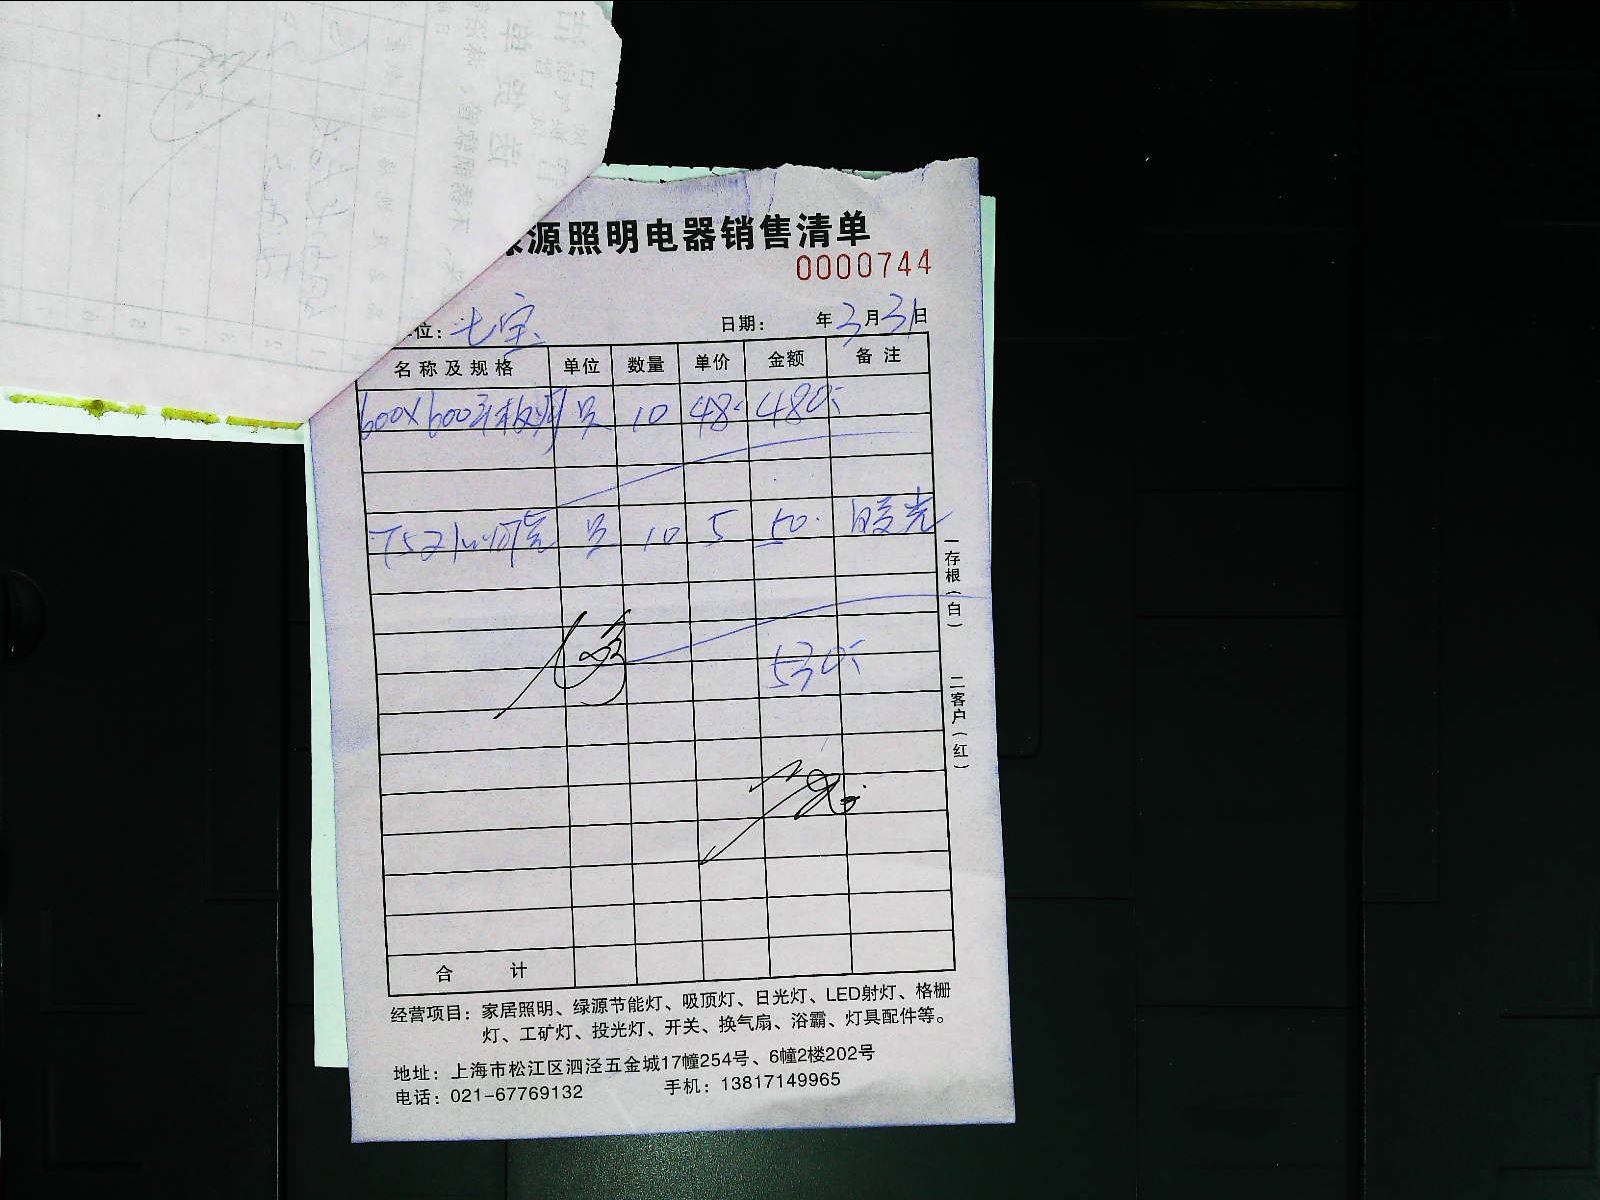 源照明电器销售清单
0000744
位: 七宝 日期: 年3月31日
名称及规格 单位 数量 单价 金额 备注
600X600平板灯 只 10 48 480
T5 21W灯管 只 10 5 50 暖光
530
合 计
一存根(白) 二客户(红)
经营项目: 家居照明、绿源节能灯、吸顶灯、日光灯、LED射灯、格栅
灯、工矿灯、投光灯、开关、换气扇、浴霸、灯具配件等。
地址: 上海市松江区泗泾五金城17幢254号、6幢2楼202号
电话: 021-67769132 手机: 13817149965